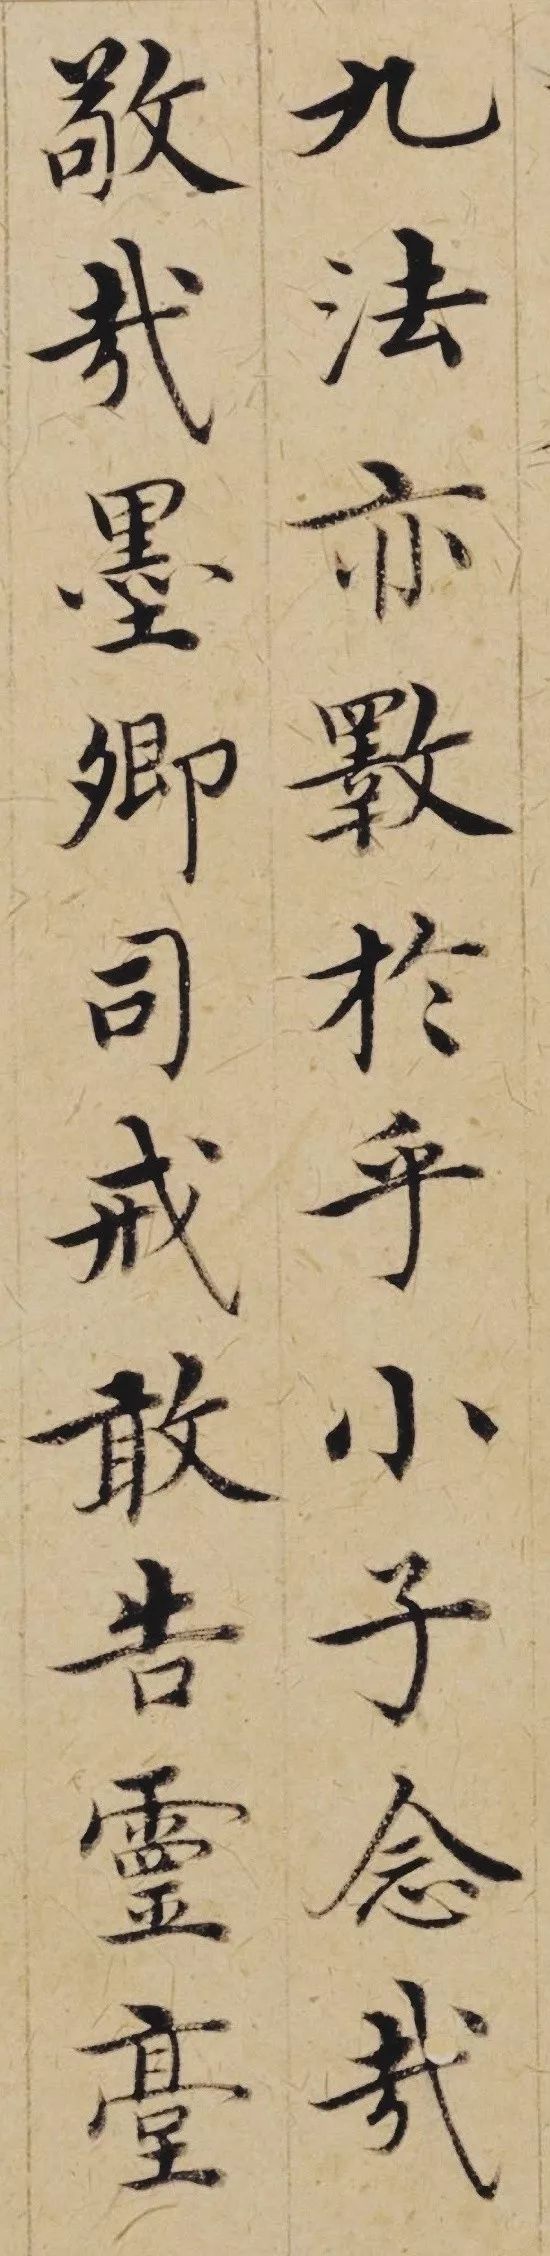 九法亦斁於乎小子念哉
敬哉墨卿司戒敢告靈臺